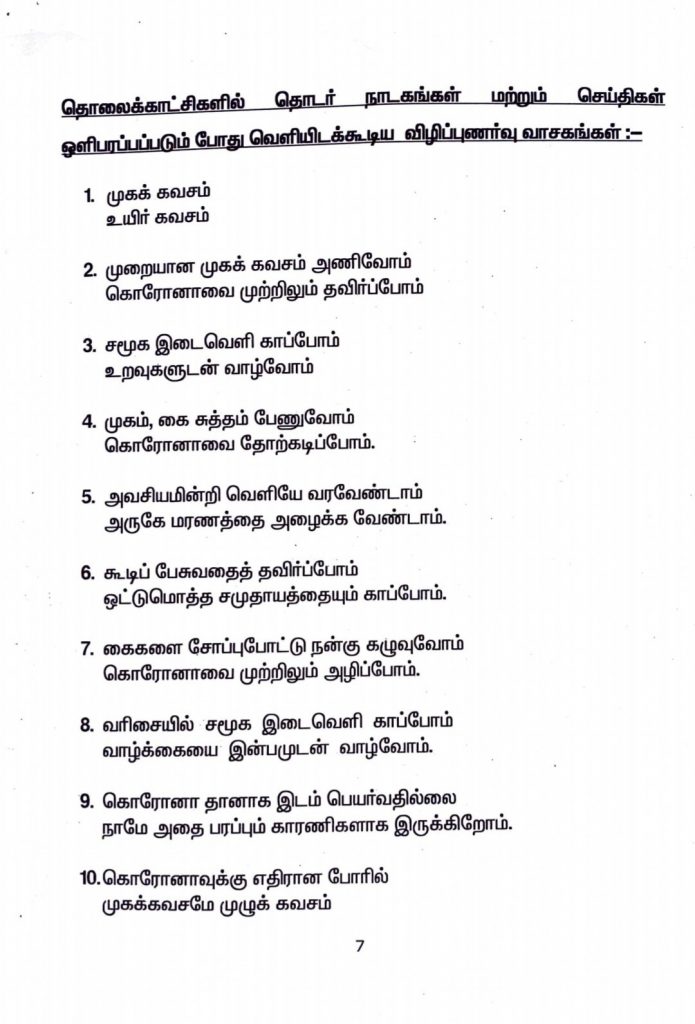 தொலைக்காட்சிகளில் தொடர் நாடகங்கள் மற்றும் செய்திகள்
ஒளிபரப்பப்படும் போது வெளியிடக்கூடிய விழிப்புணர்வு வாசகங்கள் :–
1. முகக் கவசம்
உயிர் கவசம்
2. முறையான முகக் கவசம் அணிவோம்
கொரோனாவை முற்றிலும் தவிர்ப்போம்
3. சமூக இடைவெளி காப்போம்
உறவுகளுடன் வாழ்வோம்
4. முகம், கை சுத்தம் பேணுவோம்
கொரோனாவை தோற்கடிப்போம்.
5. அவசியமின்றி வெளியே வரவேண்டாம்
அருகே மரணத்தை அழைக்க வேண்டாம்.
6. கூடிப் பேசுவதைத் தவிர்ப்போம்
ஒட்டுமொத்த சமுதாயத்தையும் காப்போம்.
7. கைகளை சோப்புபோட்டு நன்கு கழுவுவோம்
கொரோனாவை முற்றிலும் அழிப்போம்.
8. வரிசையில் சமூக இடைவெளி காப்போம்
வாழ்க்கையை இன்பமுடன் வாழ்வோம்.
9. கொரோனா தானாக இடம் பெயர்வதில்லை
நாமே அதை பரப்பும் காரணிகளாக இருக்கிறோம்.
10.கொரோனாவுக்கு எதிரான போரில்
முகக்கவசமே முழுக் கவசம்
7